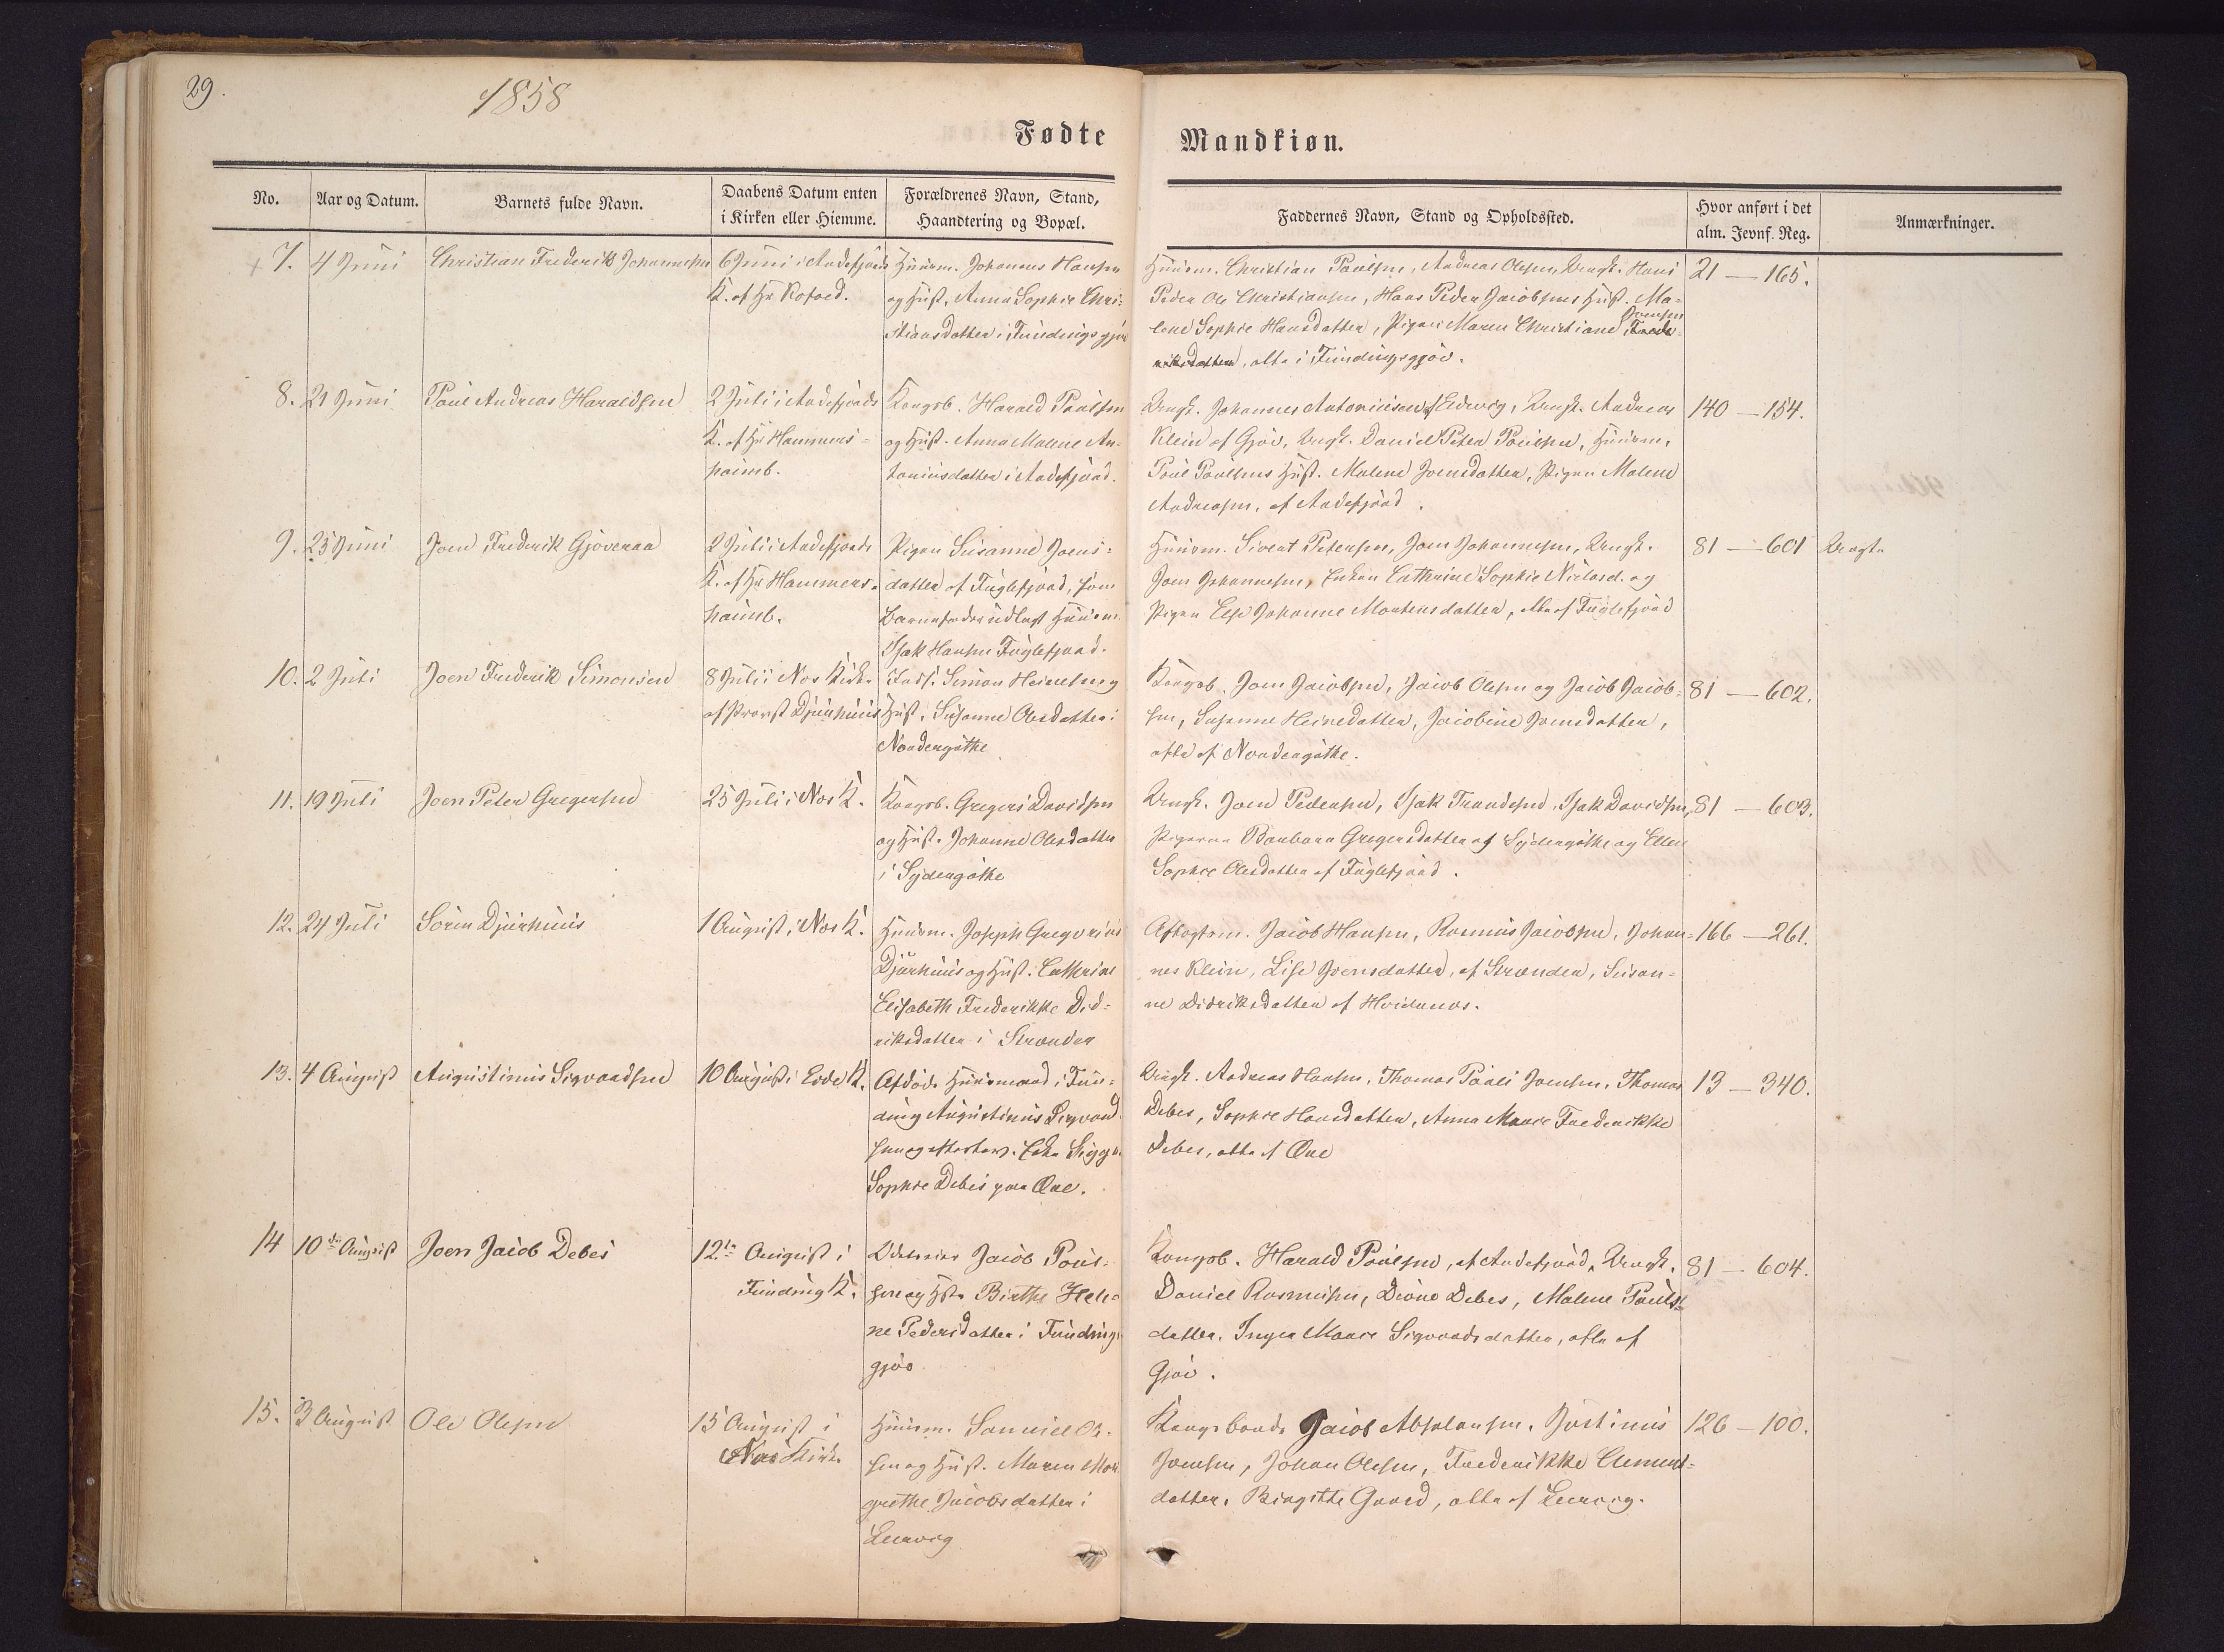 29.
1858
Fødte
Mandkiøn.
No.
Aar og Datum.
Barnets fulde Navn.
Daabens Datum enten
i Kirken eller Hiemme.
Forældrenes Navn, Stand,
Haandtering og Bopæl.
Faddernes Navn, Stand og Opholdssted.
Hvor anført i det
alm. Jevnf. Reg.
Anmærkninger.
7. 4 Juni
Christian Frederik Johannesen
6 Juni i Andefjords
K. af Hr Rofoed.
Huusm. Johannes Hansen
og Hust. Anna Sophie Chri-
stiansdatter i Fundingsgjov
Huusm. Christian Poulsen, Andreas Olesen, Ungk. Hans
Peder Ole Christiansen, Hans Peder Jacobsens Hust. Ma-
lene Sophie Hansdatter, Pigen Maren Christiane Frede-
Joensen
riksdatter, alle i Fundingsgjov.
21 — 165.
8. 21 Juni
Poul Andreas Haraldsen
2 Juli i Andefjords
K. af Hr Hammers-
haimb.
Kongsb. Harald Poulsen
og Hust. Anna Malene An-
toniusdatter i Andefjord.
Ungk. Johannes Antoniusen af Leirvig, Ungk. Andreas
Klein af Gjov, Ungk. Daniel Peter Poulsen, Huusm.
Poul Poulsens Hust. Malene Joensdatter, Pigen Malene
Andreasen, af Andefjord.
140 — 154.
9. 25 Juni
Joen Frederik Gjoveraa
2 Juli i Andefjords
K. af Hr Hammers-
haimb.
Pigen Susanne Joens-
datter af Fuglefjord, som
Barnefader udlagt Huusm.
Isak Hansen Fuglefjord.
Huusm. Sivert Petersen, Joen Johannesen, Ungk.
Joen Johannesen, Enken Cathrine Sophie Nielsd. og
Pigen Else Johanne Mortensdatter, alle af Fuglefjord
81 — 601
Uægte
10. 2 Juli
Joen Frederik Simonsen
8 Juli i Næs Kirke
af Provst Djurhuus
Simon Heinesen og
Hust. Susanne Olesdatter i
Nordergøthe
Kongsb. Joen Jacobsen, Jacob Olesen og Jacob Jacob-
sen, Susanne Heinesdatter, Jacobine Joensdatter,
alle af Nordergøthe.
81 — 602.
11. 19 Juli
Joen Peter Gregersen
25 Juli i Næs K.
Kongsb. Gregers Davidsen
og Hust. Johanne Olesdatter
i Sydergøthe
Ungk. Joen Pedersen, Isak Trondesen, Isak Davidsen,
Pigerne Barbara Gregersdatter af Sydergøthe og Ellen
Sophie Olesdatter af Fuglefjord.
81 — 603.
12. 24 Juli
Sørin Djurhuus
1 August i Næs K.
Huusm. Joseph Gregorius
Djurhuus og Hust. Cathrine
Elisabeth Frederikke Did-
riksdatter i Strænder
Aftægtsm. Jacob Hansen, Rasmus Jacobsen, Johan-
nes Klein, Lise Joensdatter, af Strænder, Susan-
ne Didriksdatter af Hvidenæs.
166 — 261.
13. 4 August
Augustinus Sigvardsen
10 August i Eide K.
Afdøde Huusmand i Fun-
ding Augustinus Sigvard-
sen og efterlev. Enke Sigga
Sophie Debes paa Øre.
Ungk. Andreas Hansen, Thomas Pauli Joensen, Thomas
Debes, Sophie Hansdatter, Anna Marie Frederikke
Debes, alle af Øre
13 — 340.
14 10de August
Joen Jacob Debes
12te August i
Funding K.
Jacob Pouls-
sen og Hst. Birthe Hele-
ne Pedersdatter i Fundings
gjov
Kongsb. Harald Poulsen, af Andefjord, Ungk.
Daniel Rasmusen, Dione Debes, Malene Pouls-
datter, Inger Marie Sigvardsdatter, alle af
Gjov.
81 — 604.
15. 3 August
Ole Olesen
15 August i
Næs Kirke
Huusm. Samuel Ole-
sen og Hust. Maren Mar-
grethe Jacobsdatter i
Leervig
Kongsbonde Jacob Absalonsen, Justinus
Joensen, Johan Olesen, Frederikke Clements-
datter, Birgitte Gaard, alle af Leervig.
126 — 100.